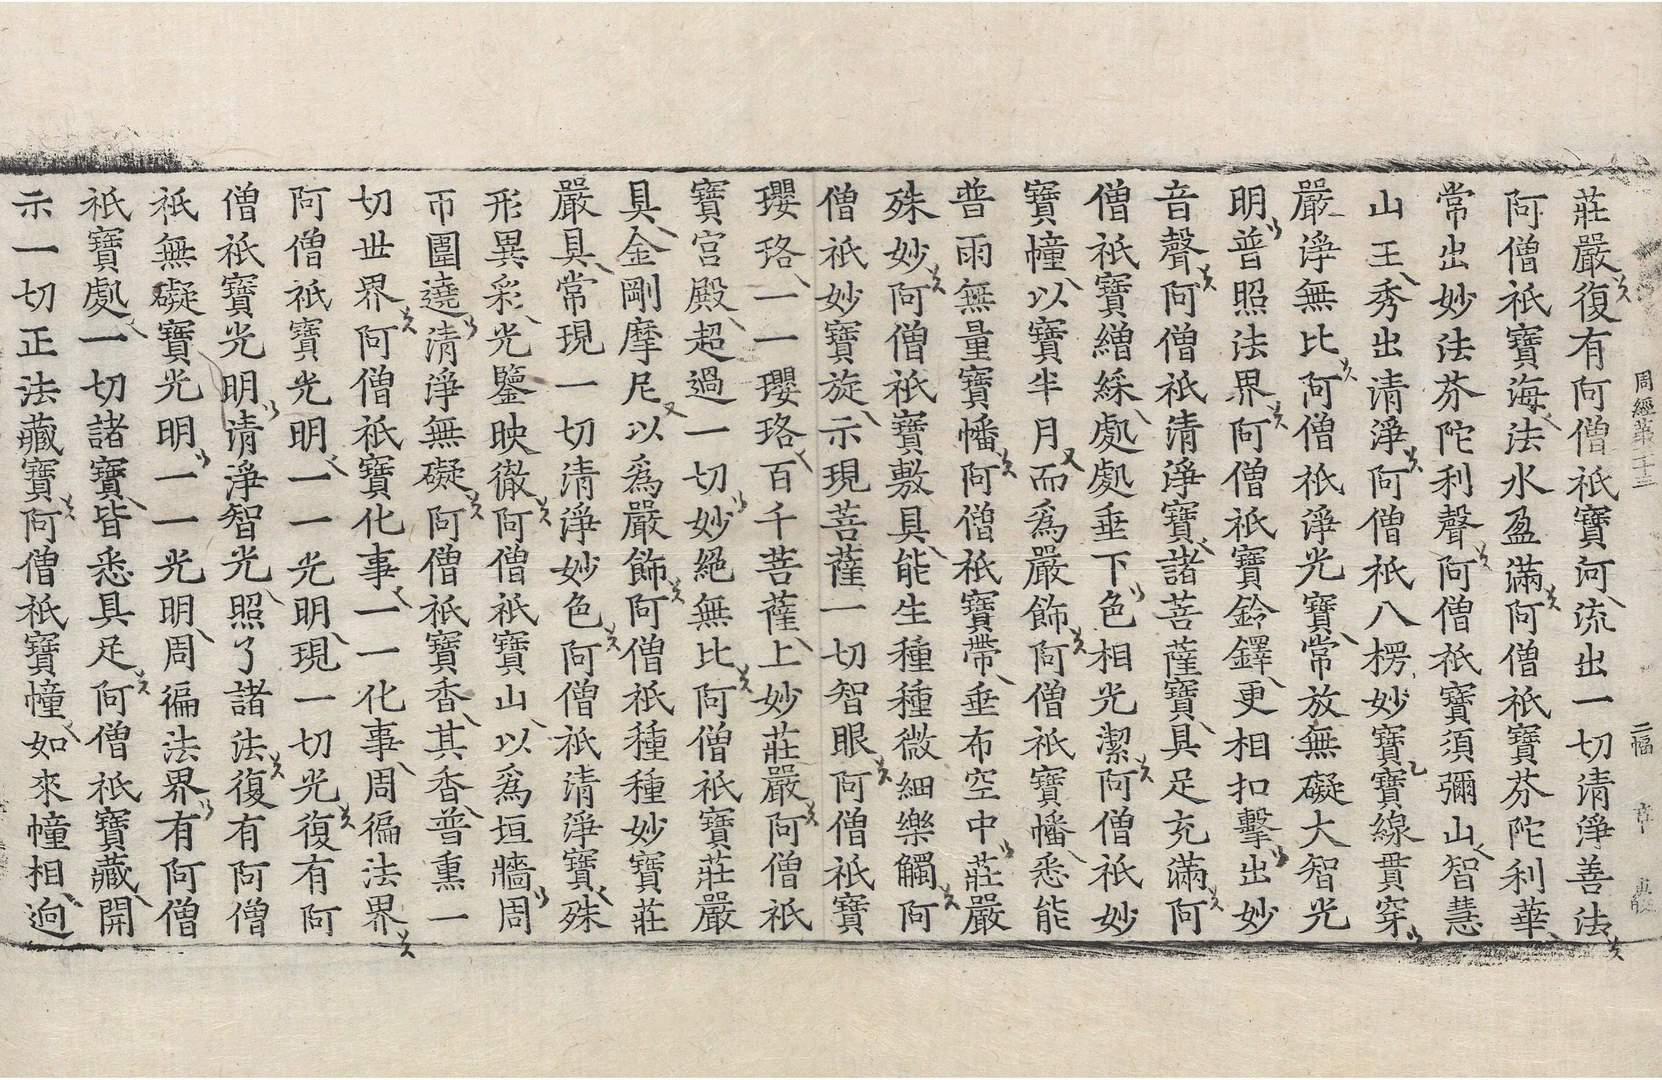 周經第二十三 二幅
莊嚴復有阿僧祇寶河流出一切清淨善法
阿僧祇寶海法水盈滿阿僧祇寶芬陀利華
常出妙法芬陀利聲阿僧祇寶須彌山智慧
山王秀出清淨阿僧祇八楞妙寶寶線貫穿
嚴淨無比阿僧祇淨光寶常放無礙大智光
明普照法界阿僧祇寶鈴鐸更相扣擊出妙
音聲阿僧祇清淨寶諸菩薩寶具足充滿阿
僧祇寶繒綵處處垂下色相光潔阿僧祇妙
寶幢以寶半月而爲嚴飾阿僧祇寶幡悉能
普雨無量寶幡阿僧祇寶帶垂布空中莊嚴
殊妙阿僧祇寶敷具能生種種微細樂觸阿
僧祇妙寶旋示現菩薩一切智眼阿僧祇寶
瓔珞一一瓔珞百千菩薩上妙莊嚴阿僧祇
寶宮殿超過一切妙絕無比阿僧祇寶莊嚴
具金剛摩尼以爲嚴飾阿僧祇種種妙寶莊
嚴具常現一切清淨妙色阿僧祇清淨寶殊
形異彩光鑒映徹阿僧祇寶山以爲垣牆周
帀圍遶清淨無礙阿僧祇寶香其香普熏一
切世界阿僧祇寶化事一一化事周徧法界
阿僧祇寶光明一一光明現一切光復有阿
僧祇寶光明清淨智光照了諸法復有阿僧
祇無礙寶光明一一光明周徧法界有阿僧
祇寶處一切諸寶皆悉具足阿僧祇寶藏開
示一切正法藏寶阿僧祇寶幢如來幢相逈